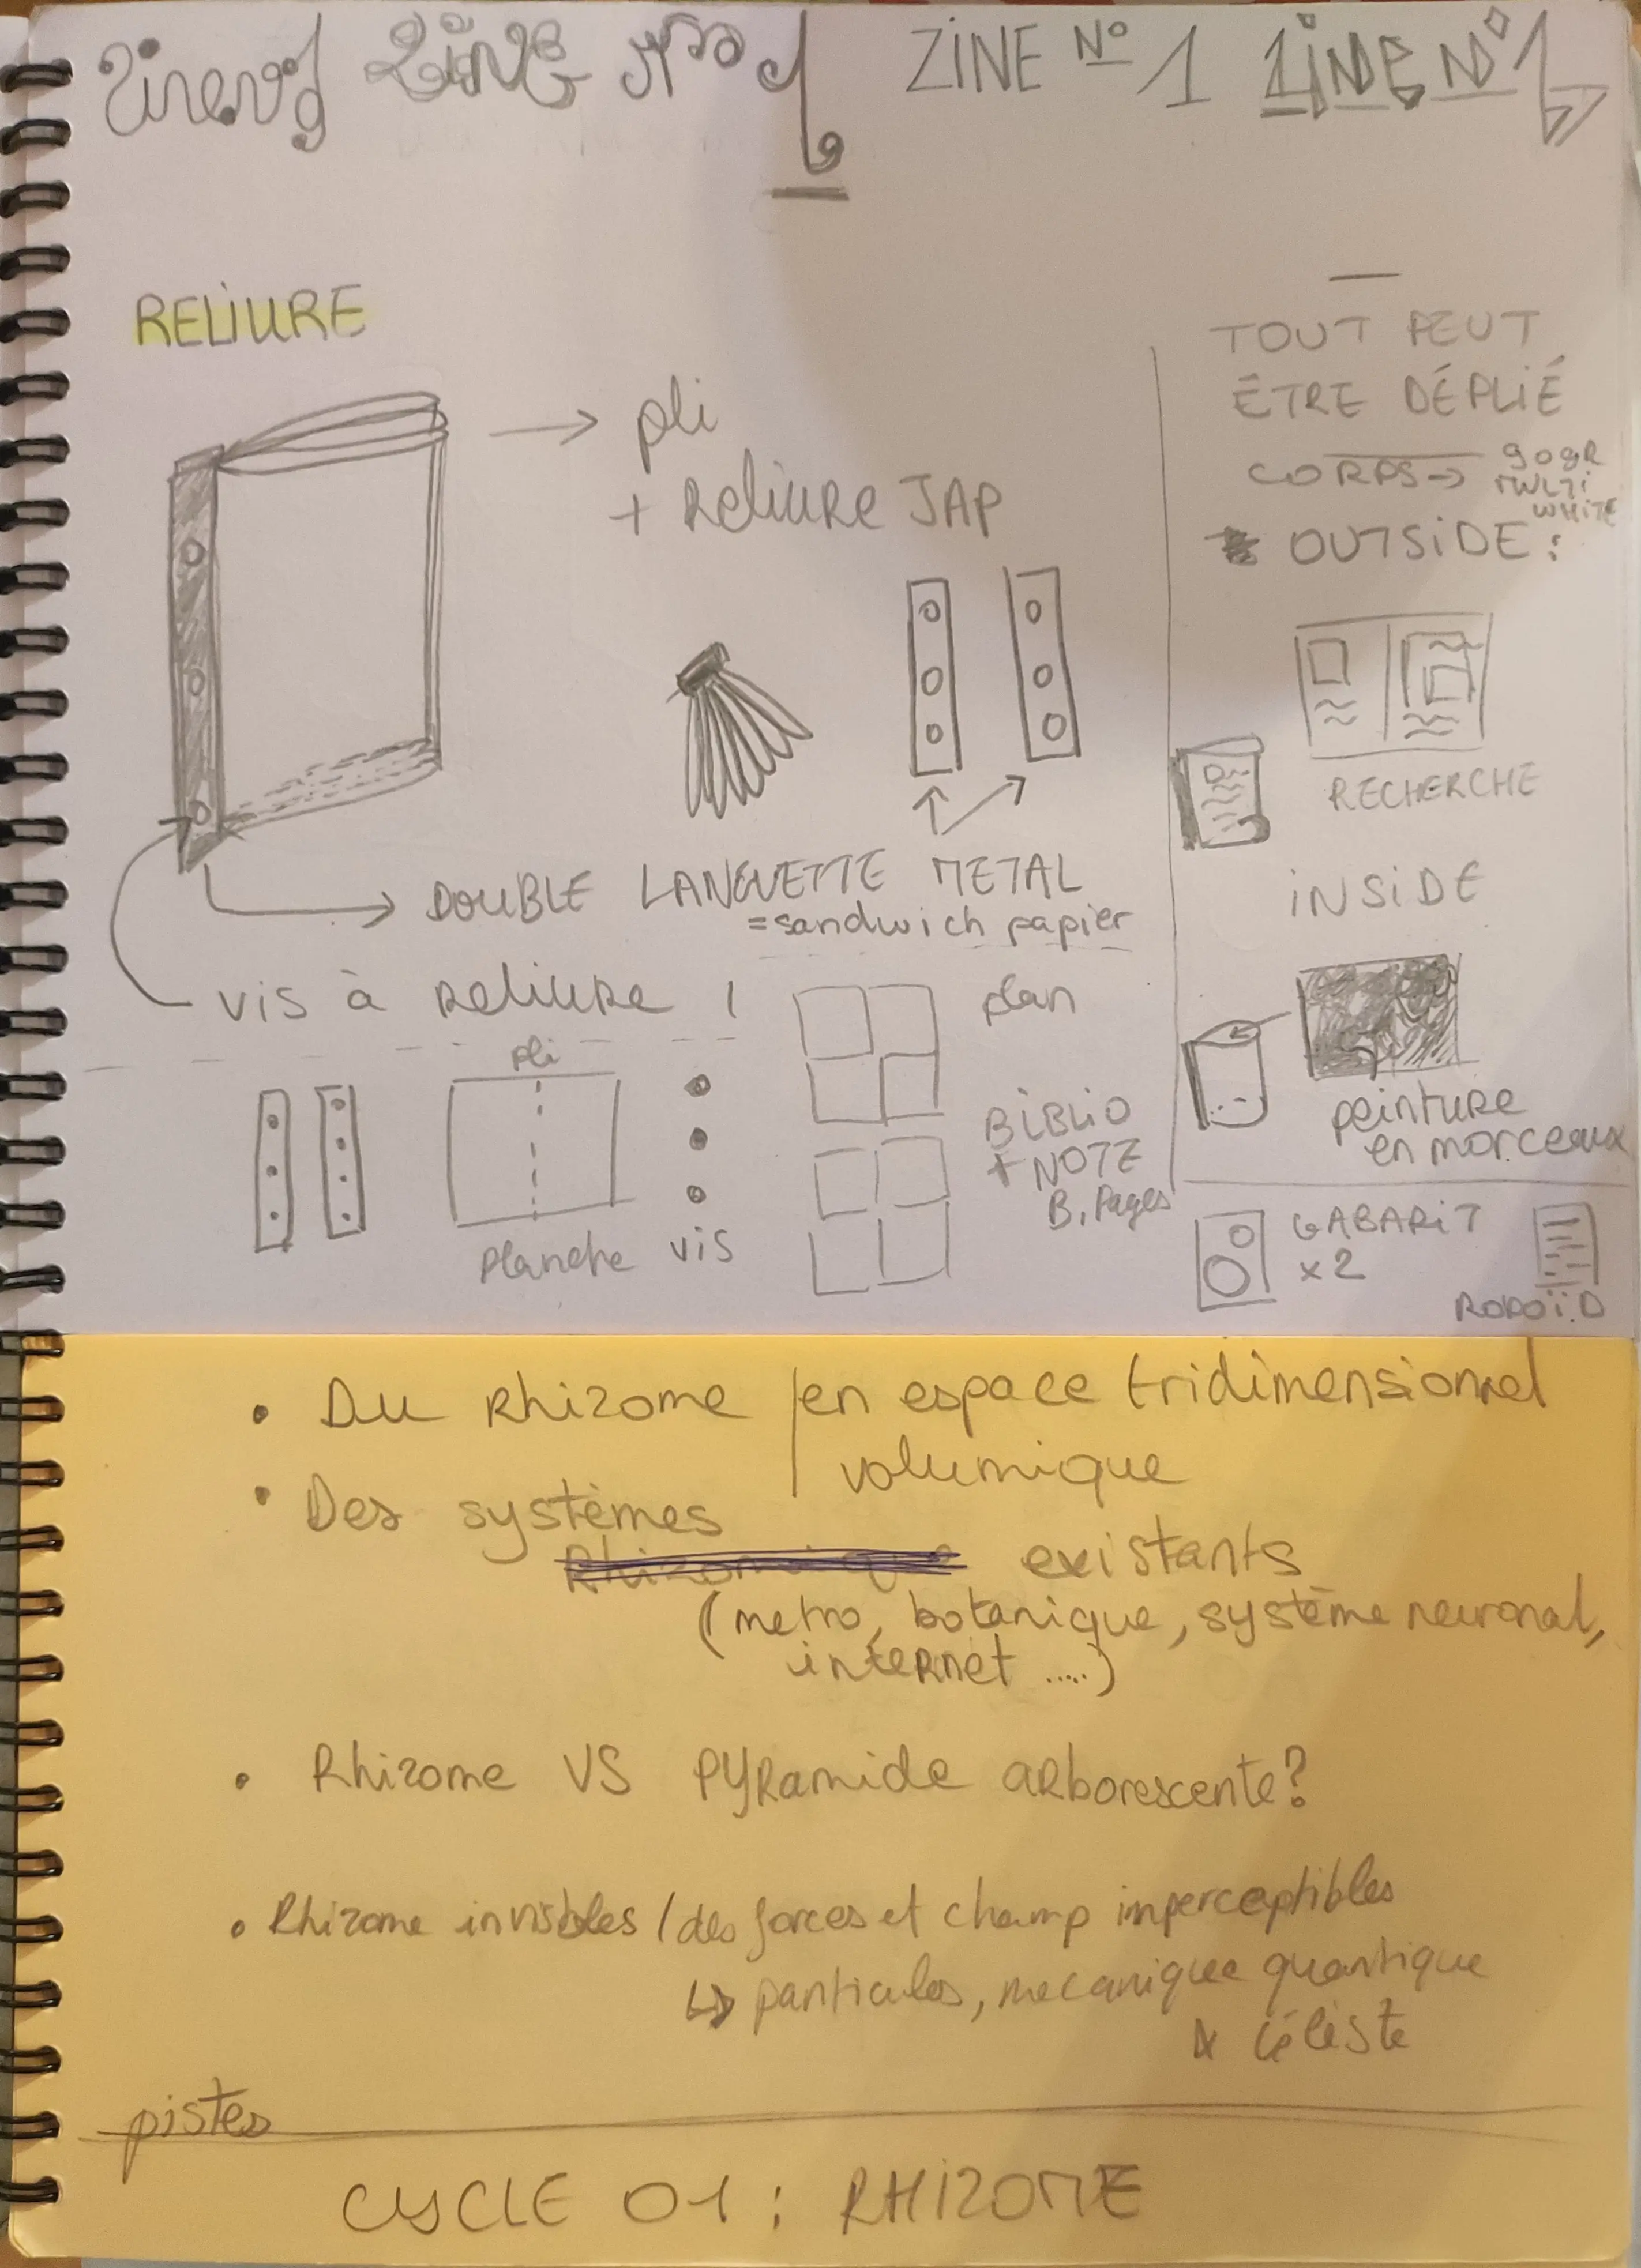 Zine n°1 ZINE N°1 ZINE N° 1 ZINE N°1
RELIURE
pli
+ Reliure JAP
DOUBLE LANGUETTE METAL
= sandwich papier
vis à reliure !
pli
Planche
vis
plan
BIBLIO
+ NOTE
B. Pages
TOUT PEUT
ÊTRE DÉPLIÉ
CORPS → 90gR
MULTI
WHITE
OUTSIDE :
RECHERCHE
INSIDE
peinture
en morceaux
GABARIT
x2
RODOÏD
• Du Rhizome / en espace tridimensionnel
volumique
• Des systèmes
Rhizomique existants
(metro, botanique, système neuronal,
internet .....)
• Rhizome VS PYRamide arborescente?
• Rhizome invisibles / des forces et champ imperceptibles
↳ particules, mecanique quantique
céleste
pistes
CYCLE 01 : RHIZOME